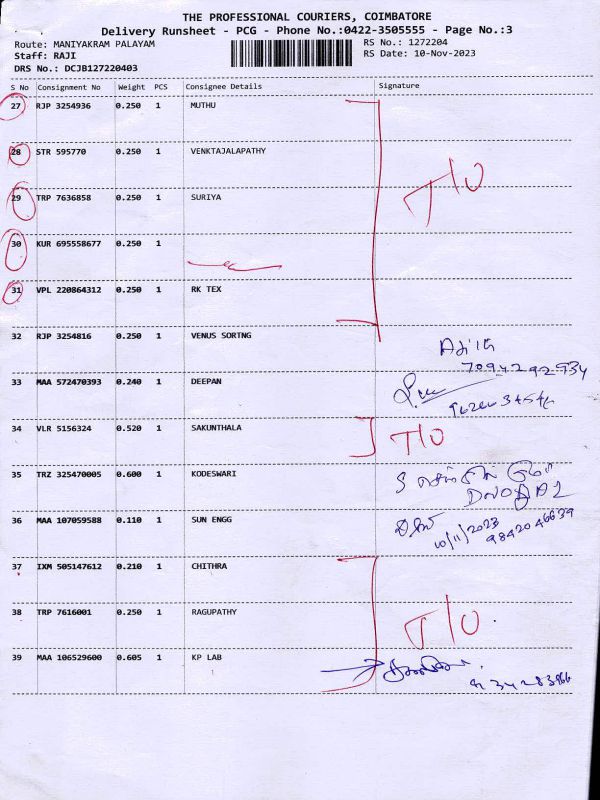 THE PROFESSIONAL COURIERS, COIMBATORE
Delivery Runsheet - PCG - Phone No.:0422-3505555 - Page No.:3
Route: MANIYAKRAM PALAYAM RS No.: 1272204
Staff: RAJI RS Date: 10-Nov-2023
DRS No.: DCJB127220403
S No Consignment No Weight PCS Consignee Details Signature
27 RJP 3254936 0.250 1 MUTHU
28 STR 595770 0.250 1 VENKTAJALAPATHY
T/O
29 TRP 7636858 0.250 1 SURIYA
30 KUR 695558677 0.250 1
31 VPL 220864312 0.250 1 RK TEX
32 RJP 3254816 0.250 1 VENUS SORTNG
33 MAA 572470393 0.240 1 DEEPAN
34 VLR 5156324 0.520 1 SAKUNTHALA T/O
35 TRZ 325470005 0.600 1 KODESWARI
36 MAA 107059588 0.110 1 SUN ENGG
10/11/2023 9842046639
37 IXM 505147612 0.210 1 CHITHRA
38 TRP 7616001 0.250 1 RAGUPATHY T/O
39 MAA 106529600 0.605 1 KP LAB